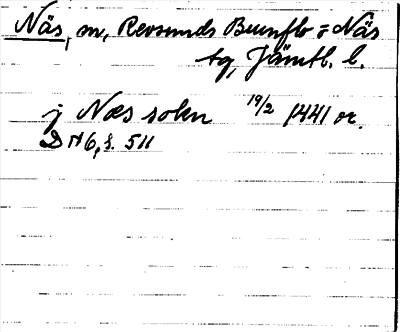 Näs, sn, Revsunds Brunflo o Näs
tg, Jämtl. l.
j Næs sokn 19/2 1441 or.
DN 6, s. 511